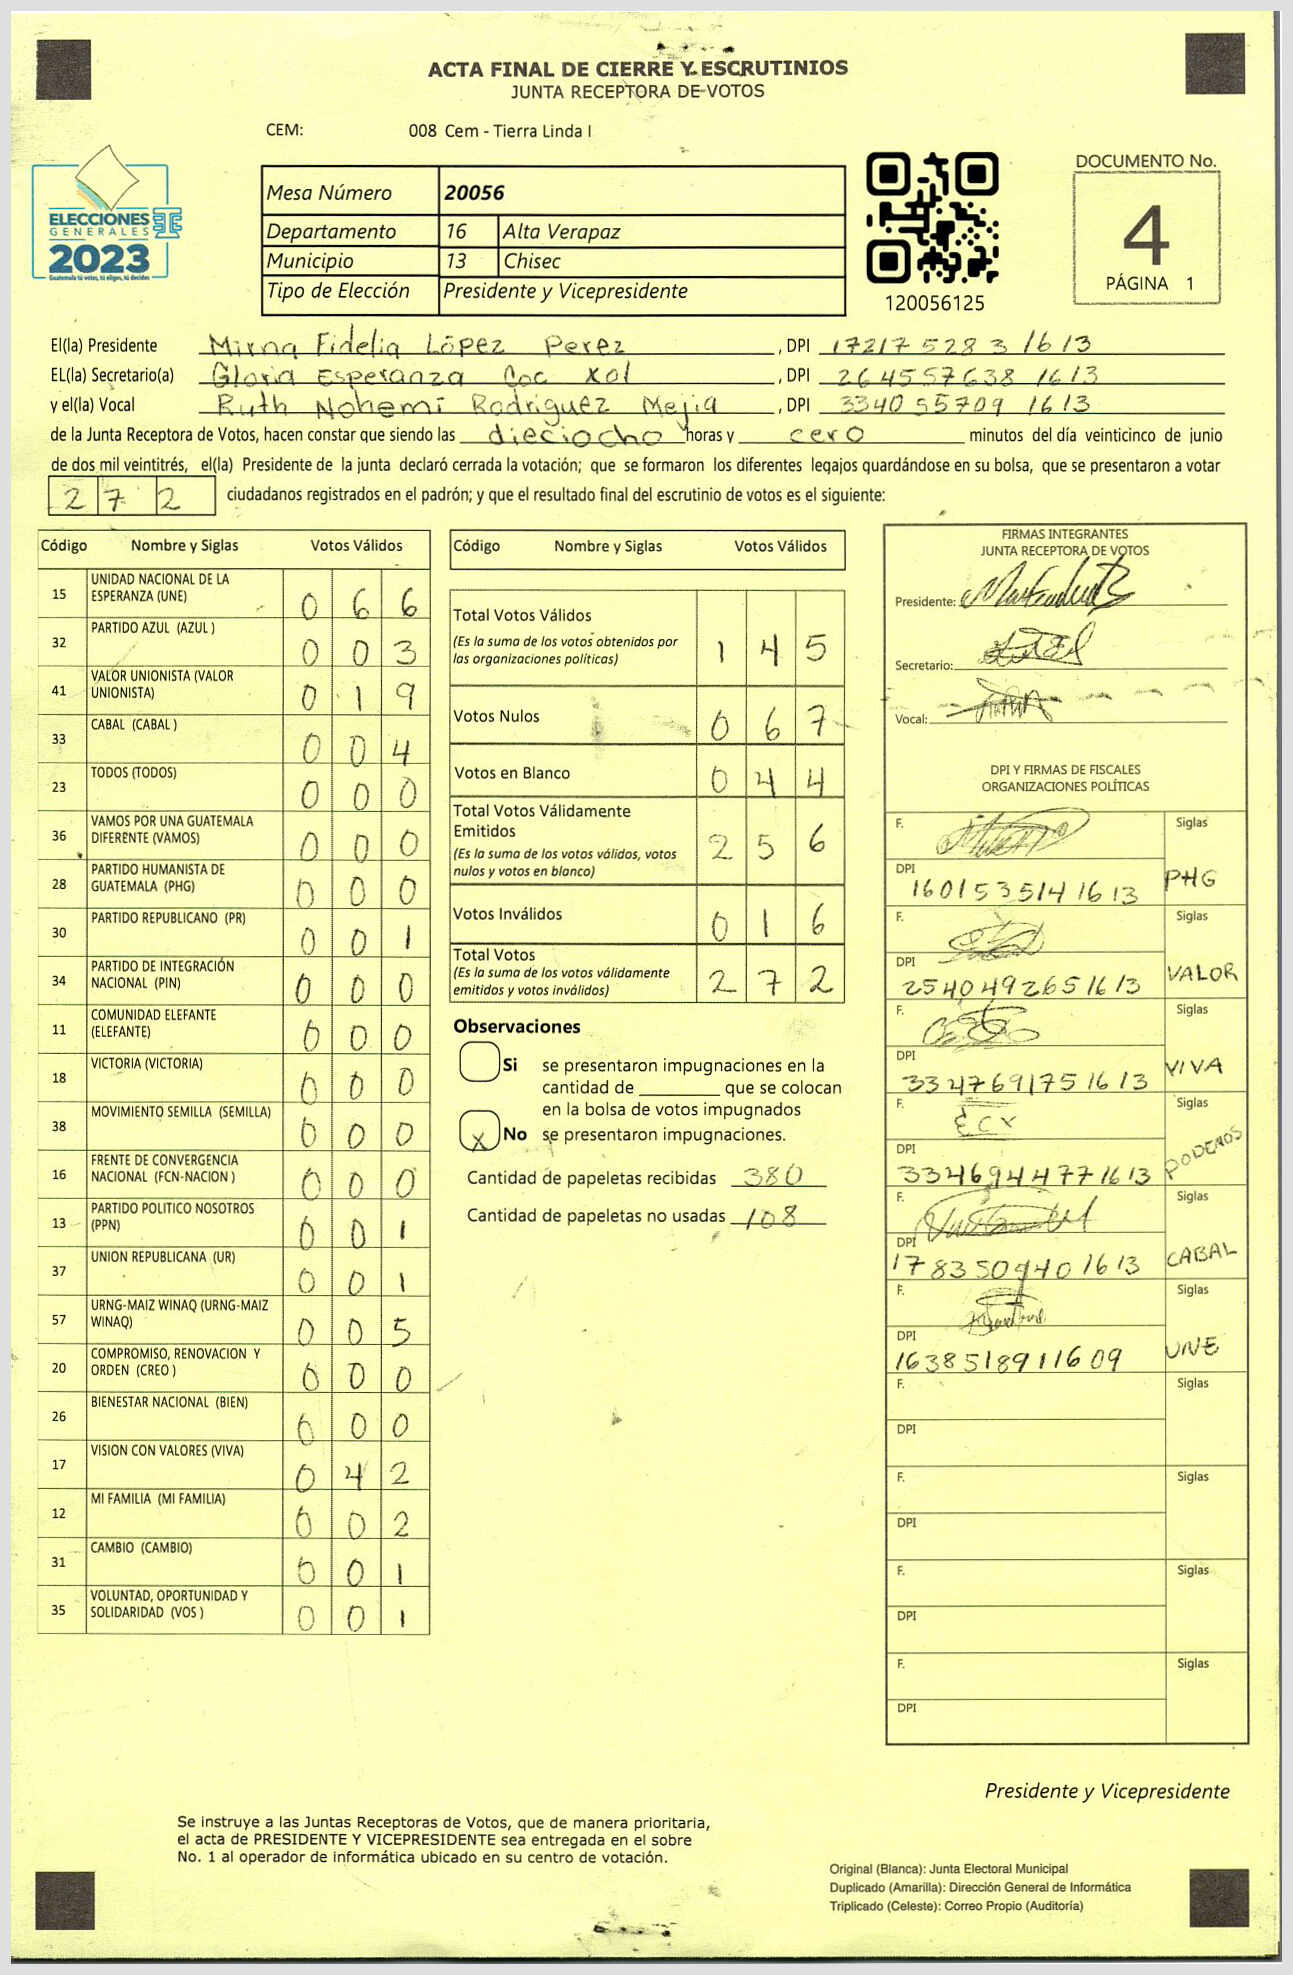 ACTA FINAL DE CIERRE Y ESCRUTINIOS
JUNTA RECEPTORA DE VOTOS
CEM: 008 Cem - Tierra Linda I
ELECCIONES
GENERALES
2023
Guatemala tú votas, tú eliges, tú decides
Mesa Número 20056
Departamento 16 Alta Verapaz
Municipio 13 Chisec
Tipo de Elección Presidente y Vicepresidente
120056125
DOCUMENTO No.
4
PÁGINA 1
El(la) Presidente Mirna Fidelia López Perez , DPI 17217 5283 1613
EL(la) Secretario(a) Gloria Esperanza Coc Xol , DPI 264557638 1613
y el(la) Vocal Ruth Nohemi Rodriguez Mejia , DPI 334055709 1613
de la Junta Receptora de Votos, hacen constar que siendo las dieciocho horas y cero minutos del día veinticinco de junio
de dos mil veintitrés, el(la) Presidente de la junta declaró cerrada la votación; que se formaron los diferentes legajos guardándose en su bolsa, que se presentaron a votar
272 ciudadanos registrados en el padrón; y que el resultado final del escrutinio de votos es el siguiente:
Código Nombre y Siglas Votos Válidos
15 UNIDAD NACIONAL DE LA ESPERANZA (UNE) 0 6 6
32 PARTIDO AZUL (AZUL ) 0 0 3
41 VALOR UNIONISTA (VALOR UNIONISTA) 0 1 9
33 CABAL (CABAL ) 0 0 4
23 TODOS (TODOS) 0 0 0
36 VAMOS POR UNA GUATEMALA DIFERENTE (VAMOS) 0 0 0
28 PARTIDO HUMANISTA DE GUATEMALA (PHG) 0 0 0
30 PARTIDO REPUBLICANO (PR) 0 0 1
34 PARTIDO DE INTEGRACIÓN NACIONAL (PIN) 0 0 0
11 COMUNIDAD ELEFANTE (ELEFANTE) 0 0 0
18 VICTORIA (VICTORIA) 0 0 0
38 MOVIMIENTO SEMILLA (SEMILLA) 0 0 0
16 FRENTE DE CONVERGENCIA NACIONAL (FCN-NACION ) 0 0 0
13 PARTIDO POLITICO NOSOTROS (PPN) 0 0 1
37 UNION REPUBLICANA (UR) 0 0 1
57 URNG-MAIZ WINAQ (URNG-MAIZ WINAQ) 0 0 5
20 COMPROMISO, RENOVACION Y ORDEN (CREO ) 0 0 0
26 BIENESTAR NACIONAL (BIEN) 0 0 0
17 VISION CON VALORES (VIVA) 0 4 2
12 MI FAMILIA (MI FAMILIA) 0 0 2
31 CAMBIO (CAMBIO) 0 0 1
35 VOLUNTAD, OPORTUNIDAD Y SOLIDARIDAD (VOS ) 0 0 1
Código Nombre y Siglas Votos Válidos
Total Votos Válidos 1 4 5
(Es la suma de los votos obtenidos por
las organizaciones políticas)
Votos Nulos 0 6 7
Votos en Blanco 0 4 4
Total Votos Válidamente
Emitidos 2 5 6
(Es la suma de los votos válidos, votos
nulos y votos en blanco)
Votos Inválidos 0 1 6
Total Votos 2 7 2
(Es la suma de los votos válidamente
emitidos y votos inválidos)
Observaciones
Si se presentaron impugnaciones en la
cantidad de ________ que se colocan
en la bolsa de votos impugnados
X No se presentaron impugnaciones.
Cantidad de papeletas recibidas 380
Cantidad de papeletas no usadas 108
FIRMAS INTEGRANTES
JUNTA RECEPTORA DE VOTOS
Presidente:
Secretario:
Vocal:
DPI Y FIRMAS DE FISCALES
ORGANIZACIONES POLÍTICAS
F. Siglas
DPI 160153514 1613 PHG
F. Siglas
DPI 254049265 1613 VALOR
F. Siglas
DPI 334769175 1613 VIVA
F. Siglas
DPI 334694477 1613 PODEMOS
F. Siglas
DPI 178350940 1613 CABAL
F. Siglas
DPI 1638518911609 UNE
F. Siglas
DPI
F. Siglas
DPI
F. Siglas
DPI
F. Siglas
DPI
Presidente y Vicepresidente
Se instruye a las Juntas Receptoras de Votos, que de manera prioritaria,
el acta de PRESIDENTE Y VICEPRESIDENTE sea entregada en el sobre
No. 1 al operador de informática ubicado en su centro de votación.
Original (Blanca): Junta Electoral Municipal
Duplicado (Amarilla): Dirección General de Informática
Triplicado (Celeste): Correo Propio (Auditoría)